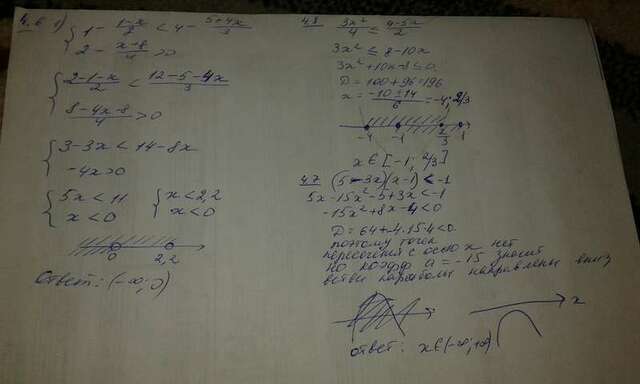 4.6 1) { 1 - (1-x)/2 < 4 - (5+4x)/3
2 - (x-8)/4 > 0
{ (2-1-x)/2 < (12-5-4x)/3
(8-4x-8)/4 > 0
{ 3-3x < 14-8x
-4x>0
{ 5x < 11 { x < 2,2
x < 0 x < 0
0 2,2
Ответ: (-∞; 0)
4.8 3x²/4 ≤ (4-5x)/2
3x² ≤ 8-10x
3x²+10x-8≤0
D = 100+96=196
x = (-10±14)/6 = -4; 2/3
-4 -1 2/3 1
x ∈ [-1; 2/3]
4.7 (5-3x)(x-1) < -1
5x-15x²-5+3x<-1
-15x²+8x-4<0
D = 64-4·15·4<0
поэтому точек
пересечения с осью x нет
но коэфф a = -15 значит
ветви параболы направлены вниз
x
ответ: x∈(-∞;+∞)